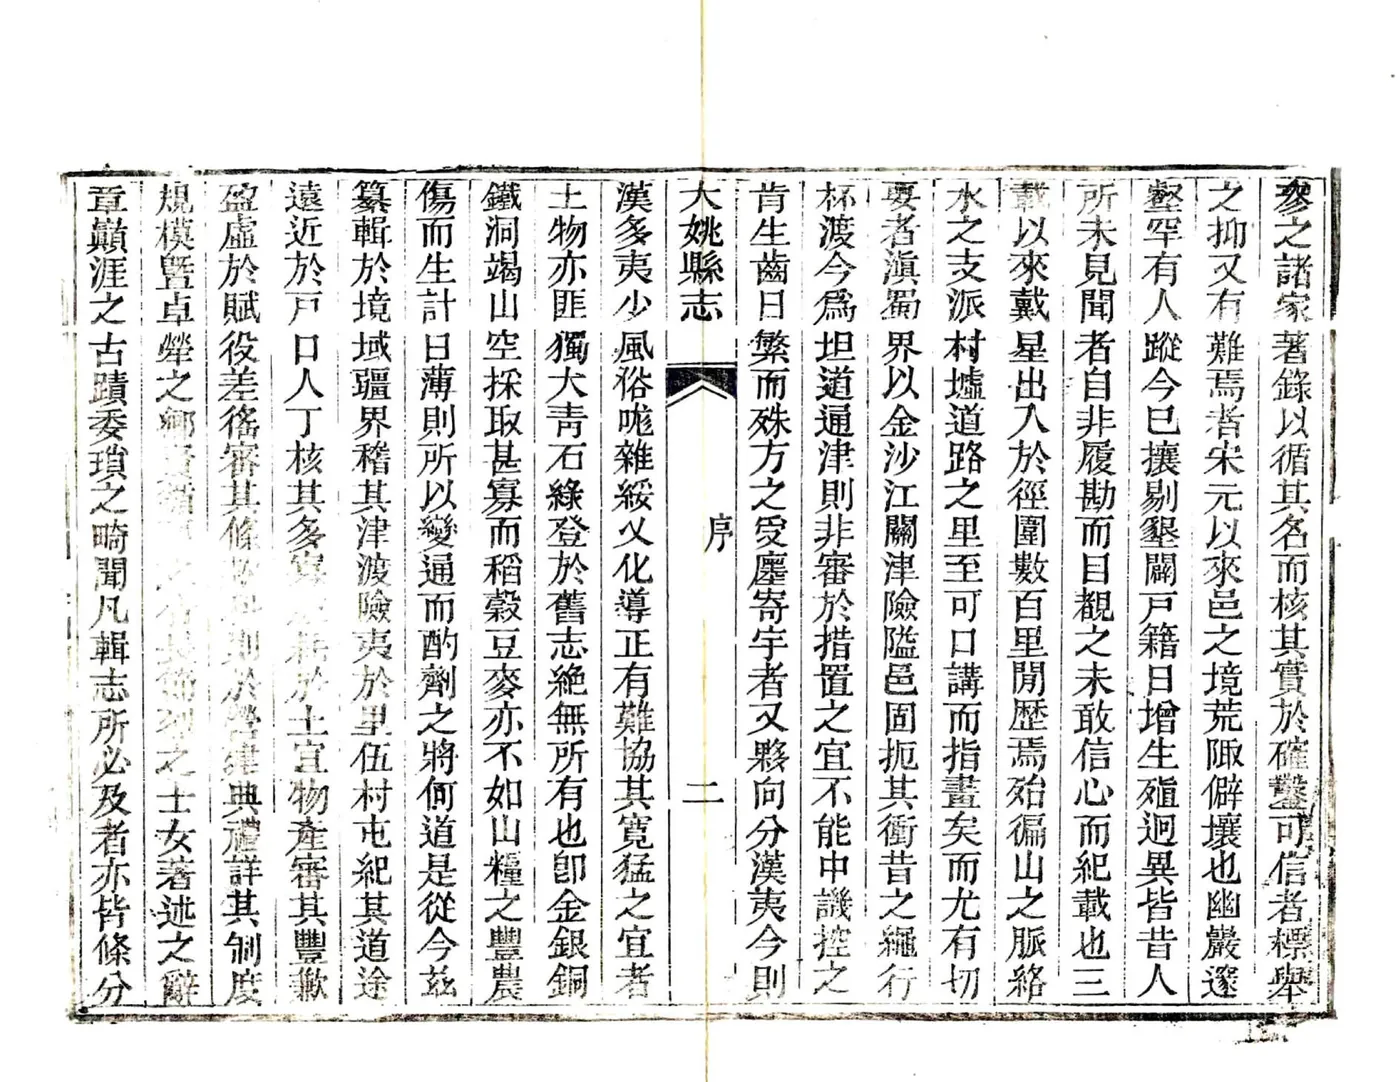 參之諸家著錄以循其名而核其實於確鑿可信者標舉
之抑又有難焉者宋元以來邑之境荒陬僻壤也幽巖邃
壑罕有人蹤今已攘剔墾闢戸籍日增生殖迥異皆昔人
所未見聞者自非履勘而目覩之未敢信心而紀載也三
載以來戴星出入於徑圍數百里閒歷焉殆徧山之脈絡
水之支派村墟道路之里至可口講而指畫矣而尤有切
要者滇蜀界以金沙江關津險隘邑固扼其衝昔之繩行
杯渡今爲坦道通津則非審於措置之宜不能中譏控之
肯生齒日繁而殊方之受廛寄宇者又夥向分漢夷今則
大姚縣志 序 二
漢多夷少風俗咙雜綏乂化導正有難協其寬猛之宜者
土物亦匪獨犬靑石綠登於舊志絶無所有也卽金銀銅
鐵洞竭山空採取甚寡而稻穀豆麥亦不如山糧之豐農
傷而生計日薄則所以變通而酌劑之將何道是從今茲
纂輯於境域疆界稽其津渡險夷於里伍村屯紀其道途
遠近於戸口人丁核其多寡 於土宜物產審其豐歉
盈虛於賦役差徭審其條 則於營建典禮詳其制度
規模曁卓犖之鄉賢循 之士女著述之辭
章巓涯之古蹟委瑣之畸聞凡輯志所必及者亦皆條分